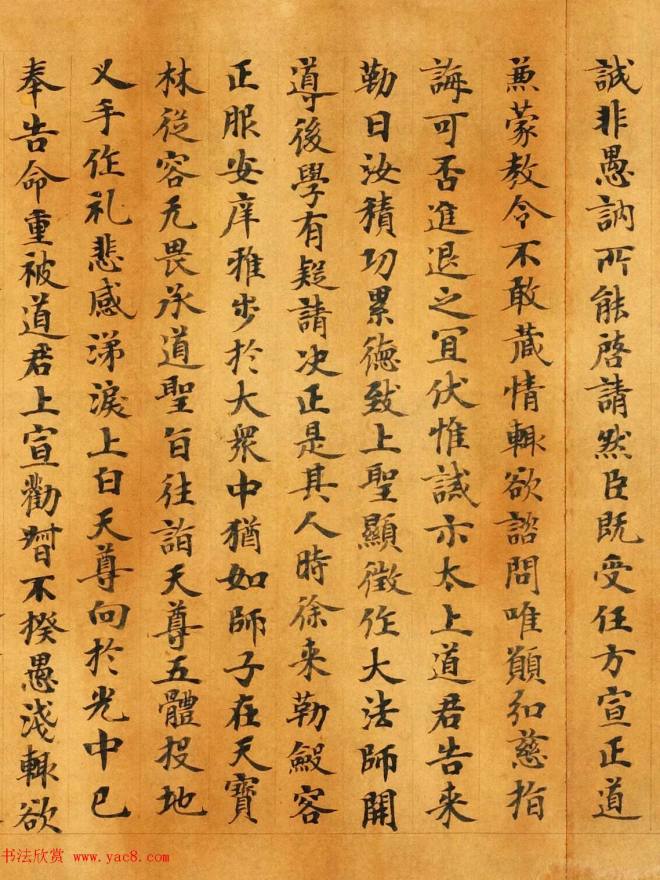 誠非愚訥所能啓請然臣既受任方宣正道
兼蒙教令不敢蔵情輙欲諮問唯願弘慈指
誨可否進退之冝伏惟誡示太上道君告来
勒曰汝積功累徳致上聖顯徴作大法師開
導後學有疑請决正是其人時徐来勒斂容
正服安庠雅步於大衆中猶如師子在天寶
林従容无畏承道聖旨往詣天尊五體投地
叉手作礼悲感涕淚上白天尊向於光中已
奉告命重被道君上宣勸督不揆愚浅輙欲
书法欣赏 www.yac8.com